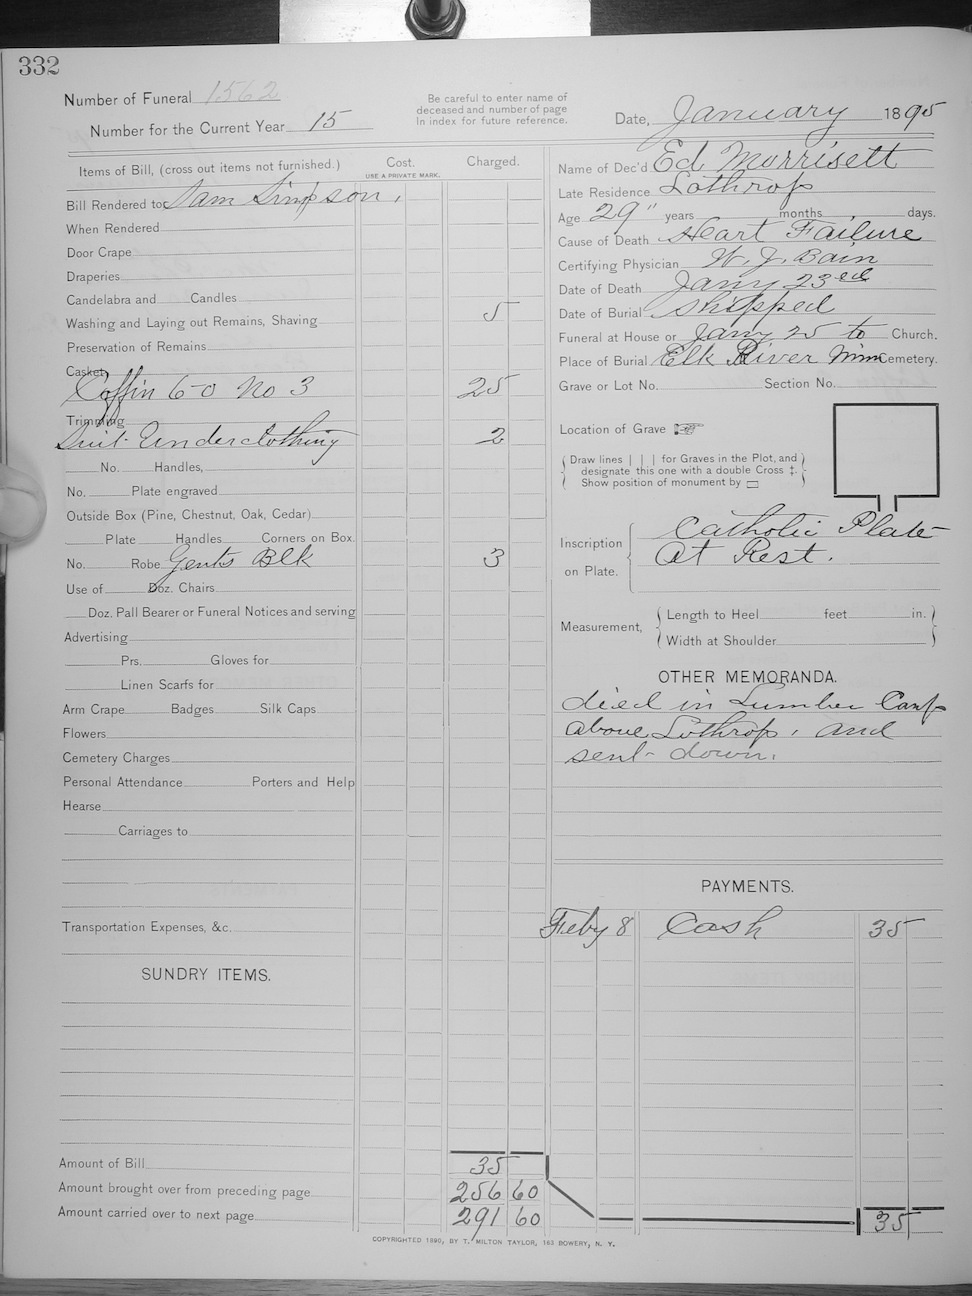 332
Number of Funeral 1562
Number for the Current Year 15
Be careful to enter name of
deceased and number of page
In index for future reference.
Date, January 1895
Items of Bill, (cross out items not furnished.)
Cost.
USE A PRIVATE MARK.
Charged.
Bill Rendered to Sam Simpson.
When Rendered
Door Crape
Draperies
Candelabra and Candles
Washing and Laying out Remains, Shaving 5
Preservation of Remains
Casket
Coffin 6-0 No 3 25
Trimming
Suit Underclothing 2
No. Handles,
No. Plate engraved
Outside Box (Pine, Chestnut, Oak, Cedar)
Plate Handles Corners on Box.
No. Robe Gents Blk 3
Use of Doz. Chairs
Doz. Pall Bearer or Funeral Notices and serving
Advertising
Prs. Gloves for
Linen Scarfs for
Arm Crape Badges Silk Caps
Flowers
Cemetery Charges
Personal Attendance Porters and Help
Hearse
Carriages to
Transportation Expenses, &c.
SUNDRY ITEMS.
Amount of Bill 35
Amount brought over from preceding page 256 60
Amount carried over to next page 291 60
Name of Dec'd Ed Morrisett
Late Residence Lothrop
Age 29" years months days.
Cause of Death Heart Failure
Certifying Physician W. J. Bain
Date of Death Jany 23ed
Date of Burial Shipped
Funeral at House or Jany 25 to Church.
Place of Burial Elk River Minn Cemetery.
Grave or Lot No. Section No.
Location of Grave ☞
Draw lines | | | for Graves in the Plot, and
designate this one with a double Cross ‡.
Show position of monument by ▭
Inscription
on Plate.
Catholic Plate
At Rest.
Measurement,
Length to Heel feet in.
Width at Shoulder
OTHER MEMORANDA.
died in Lumber Camp
above Lothrop, and
sent down.
PAYMENTS.
Feby 8 Cash 35
35
COPYRIGHTED 1890, BY T. MILTON TAYLOR, 163 BOWERY, N. Y.